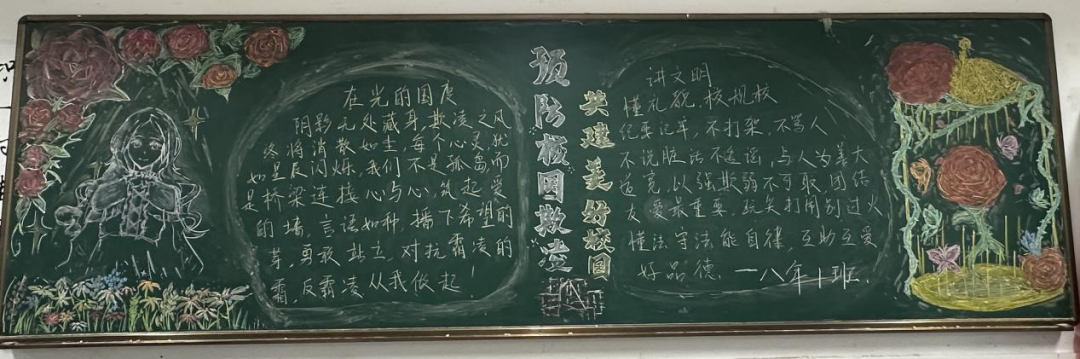 在光的国度
阴影无处藏身,欺凌之风
终将消散如尘,每个心灵,犹
如星辰闪烁,我们不是孤岛,而
是桥梁连接心与心,筑起爱
的墙,言语如种,播下希望的
芽,勇敢站立,对抗霜凌的
霜,反霸凌从我做起!
预防校园欺凌
共建美好校园
讲文明
懂礼貌,校规校
纪要记牢,不打架,不骂人
不说脏话不造谣,与人为善大
度宽,以强欺弱不可取,团结
友爱最重要,玩笑打闹别过火
懂法守法能自律,互助互爱
好品德
一八年十班